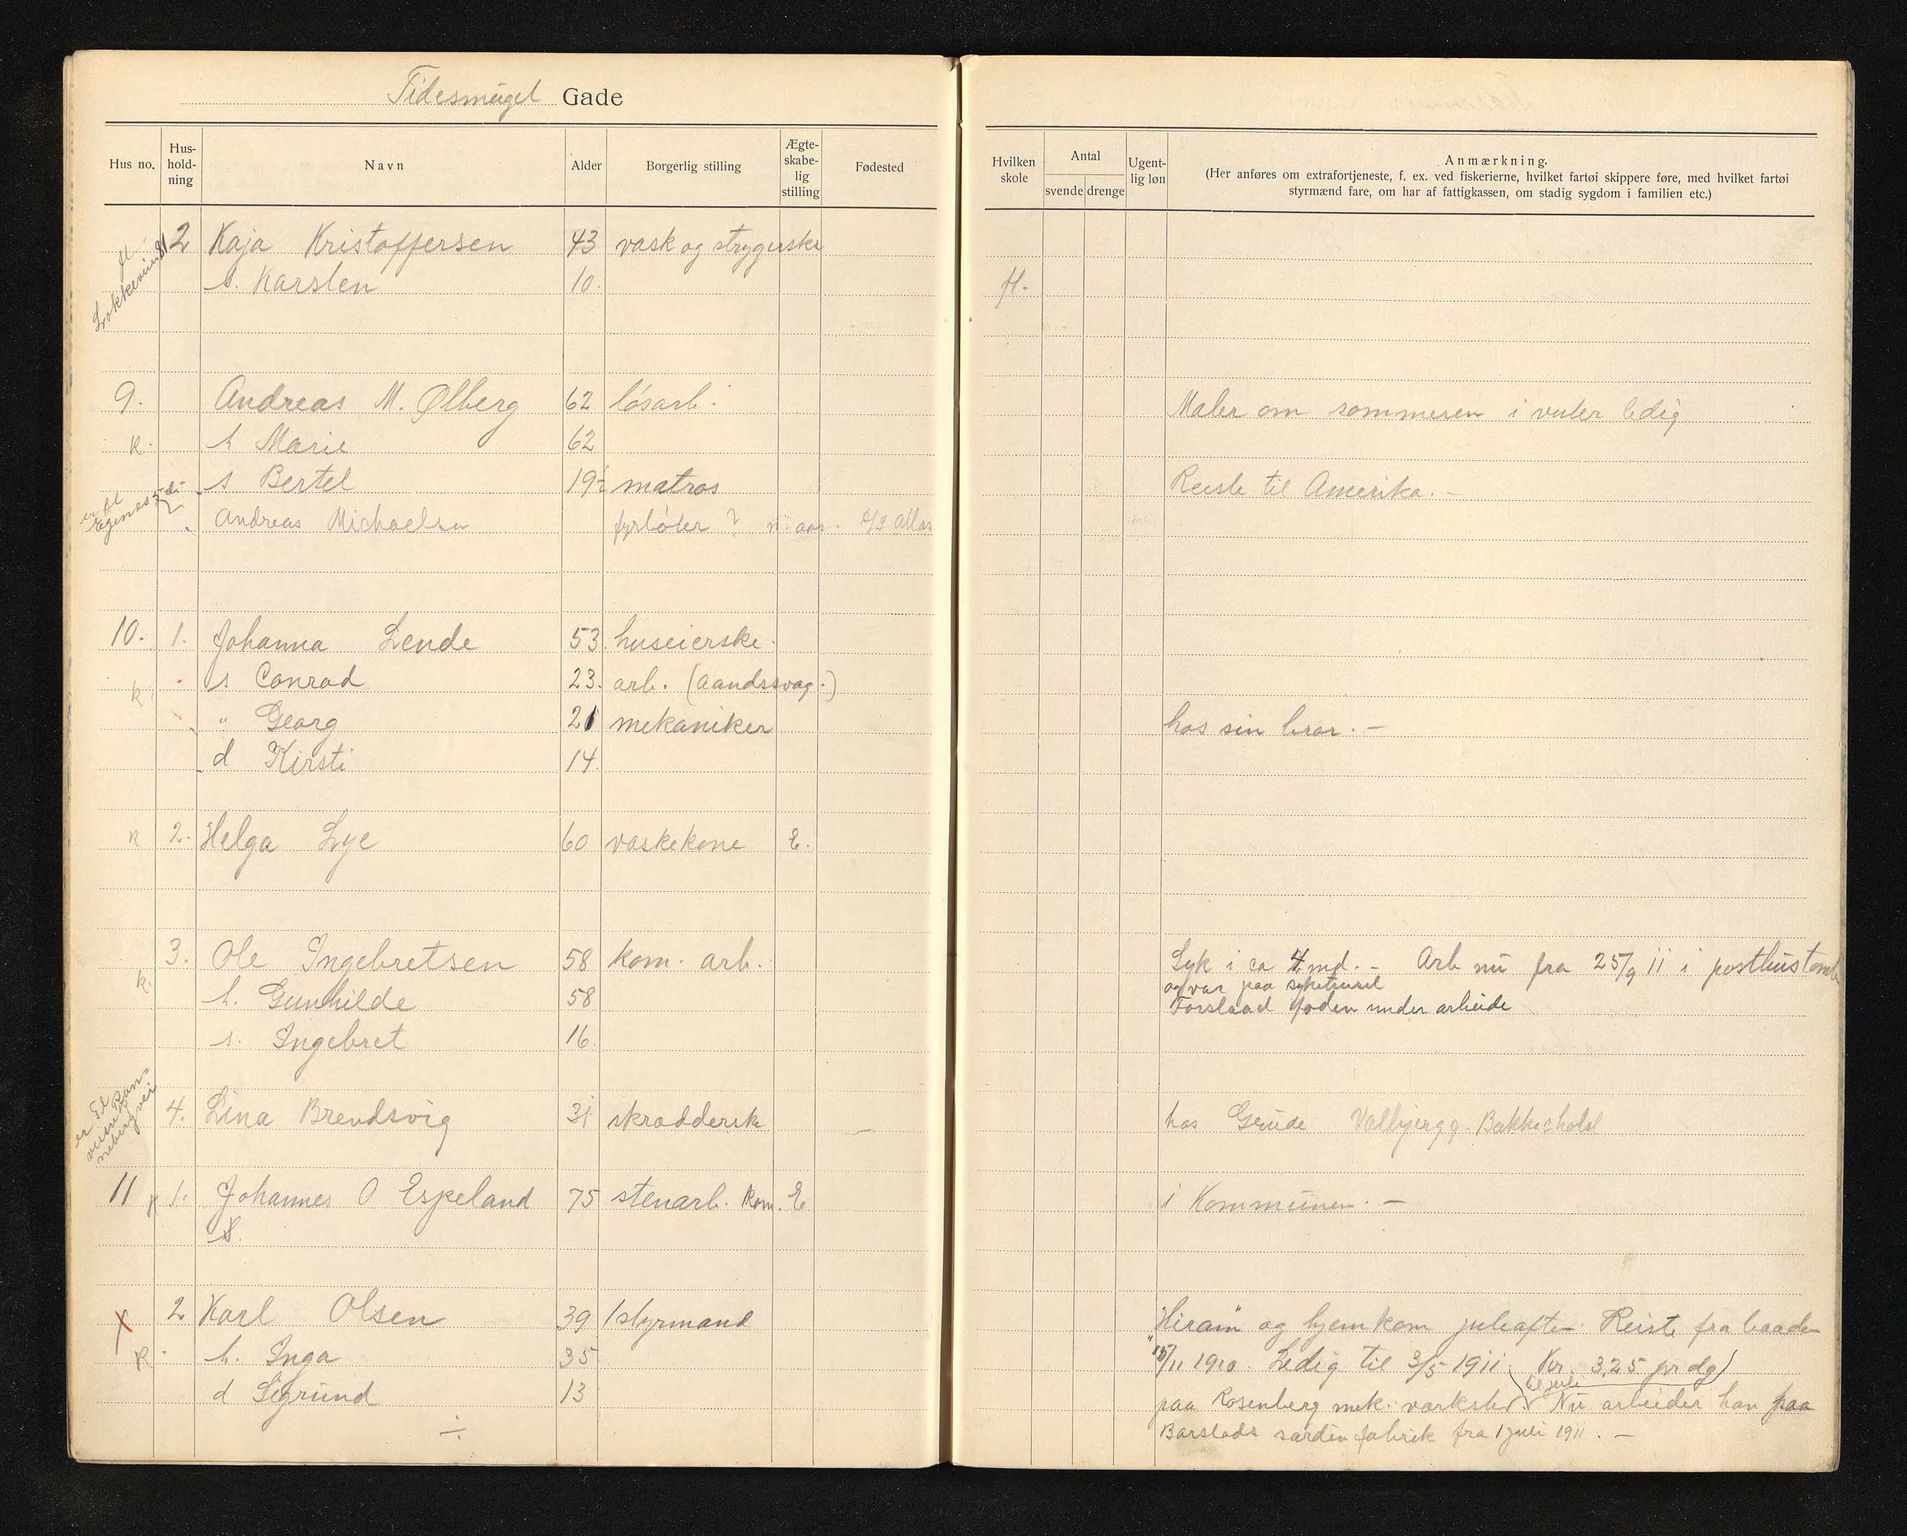 Tidesmuget Gade
Hus no. Hus-hold-ning Navn Alder Borgerlig stilling Ægte-skabe-lig stilling Fødested
Hvilken skole Antal svende drenge Ugent-lig løn Anmærkning.
(Her anføres om extrafortjeneste, f. ex. ved fiskerierne, hvilket fartøi skippere føre, med hvilket fartøi
styrmænd fare, om har af fattigkassen, om stadig sygdom i familien etc.)
2 Kaja Kristoffersen 43 vask og strygerske
s. Karsten 10. fl.
9. Andreas M. Ølberg 62 løsarb. Maler om sommeren i vinter ledig
k. h Marie 62
s Bertel 19 matros Reiste til Amerika. -
Andreas Michaelsen fyrbøter ?
10. 1. Johanna Lende 53. huseierske.
k. s Conrad 23. arb. (aandssvag.)
" Georg 21 mekaniker hos sin bror. -
d Kirsti 14.
k 2. Helga Lye 60 vaskekone E.
3. Ole Ingebretsen 58 kom. arb. Syk i ca 4 md. - Arb nu fra 25/9 11 i
og var paa sykehuset
k. h. Gunhilde 58 Forslaad foden under arbeide
s. Ingebret 16
4. Lina Brendsvig 31 skrædderske hos Grude Valbjergg. Bakke
11 k 1. Johannes O Eskeland 75 stenarb. Kom. E i Kommunen. -
S.
x 2 Karl Olsen 39 styrmand "Hiram" og hjemkom juleaften. Reiste fra baaden
k. h. Inga 35 15/11 1910. Ledig til 3/5 1911. (Kr. 3,25 pr dg)
til juli
d Sigrund 13 paa Rosenberg mek. værksted Nu arbeider han paa
Barstads sardinfabrik fra 1 juli 1911. -